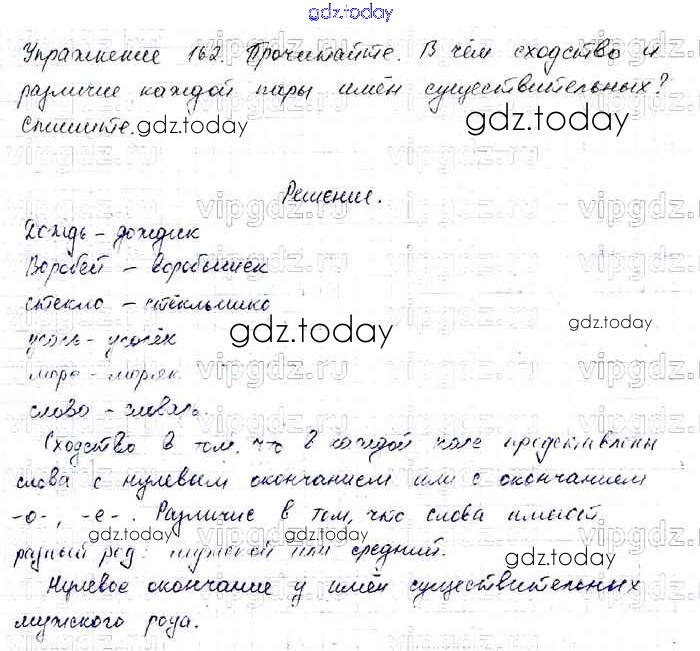 gdz.today
Упражнение 162. Прочитайте. В чём сходство и
различие каждой пары имён существительных?
Спишите.
Решение.
Дождь - дождик
Воробей - воробышек
стекло - стёклышко
море - моряк
слово - словарь.
Сходство в том, что в каждой представлены
слова с нулевым окончанием или с окончанием
-о-, -е-. Различие в том, что слова имеют
разный род: мужской или средний.
Нулевое окончание у имён существительных
мужского рода.